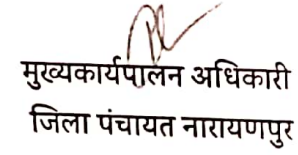 मुख्यकार्यपालन अधिकारी
जिला पंचायत नारायणपुर